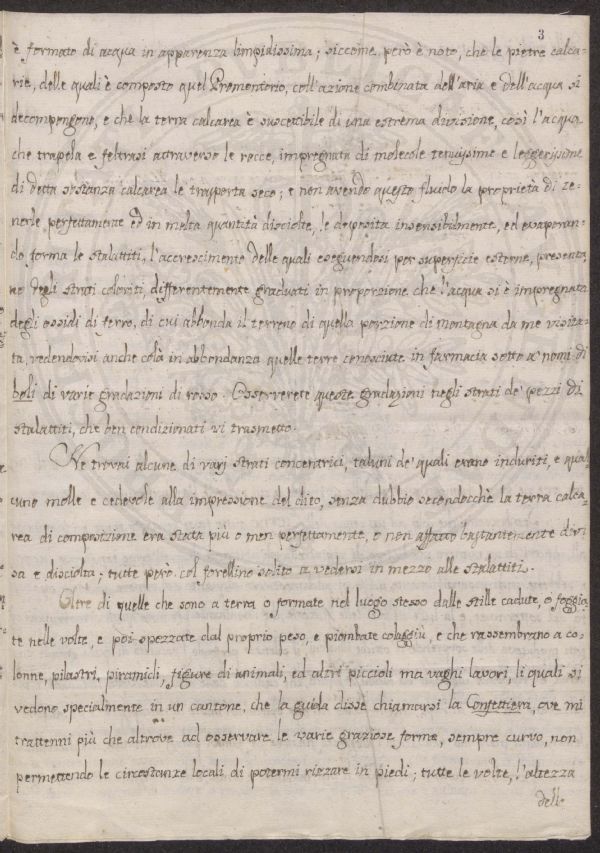 3
è formato di acqua in apparenza limpidissima; siccome però è noto, che le pietre calca-
rie, delle quali è composto quel Promontorio, coll'azione combinata dell'aria e dell'acqua si
decompongono, e che la terra calcarea è suscettibile di una estrema divisione, così l'acqua
che trapela e feltrasi attraverso le rocce, impregnata di molecole tenuissime e leggerissime
di detta sostanza calcarea le trasporta seco; e non avendo questo fluido la proprietà di te-
nerle perfettamente ed in molta quantità disciolte, le deposita insensibilmente, ed evaporan-
do forma le stalattiti, l'accrescimento delle quali eseguendosi per superficie esterne, presenta
no degli strati coloriti, differentemente graduati in proporzione che l'acqua si è impregnata
degli ossidi di ferro, di cui abbonda il terreno di quella porzione di montagna da me visita-
ta, vedendovisi anche colà in abbondanza quelle terre conosciute in farmacia sotto a' nomi di
boli di varie gradazioni di rosso. Osserverete queste gradazioni negli strati de' pezzi di
stalattiti, che ben condizionati vi trasmetto.
Ne trovai alcune di varj strati concentrici, taluni de' quali erano induriti, e qual
cuno molle e cedevole alla impressione del dito, senza dubbio secondocchè la terra calca-
rea di composizione era stata più o men perfettamente, o non affatto bastantemente divi
sa e disciolta; tutte però col forellino solito a vedersi in mezzo alle stalattiti.
Oltre di quelle che sono a terra o formate nel luogo stesso dalle stille cadute, o foggia-
te nelle volte, e poi spezzate dal proprio peso, e piombate colaggiù, e che rassembrano a co-
lonne, pilastri, piramidi, figure di animali, ed altri piccioli ma vaghi lavori, li quali si
vedono specialmente in un cantone, che la guida disse chiamarsi la Confettiera, ove mi
trattenni più che altrove ad osservare le varie graziose forme, sempre curvo, non
permettendo le circostanze locali di potermi rizzare in piedi; tutte le volte, l'altezza
delle